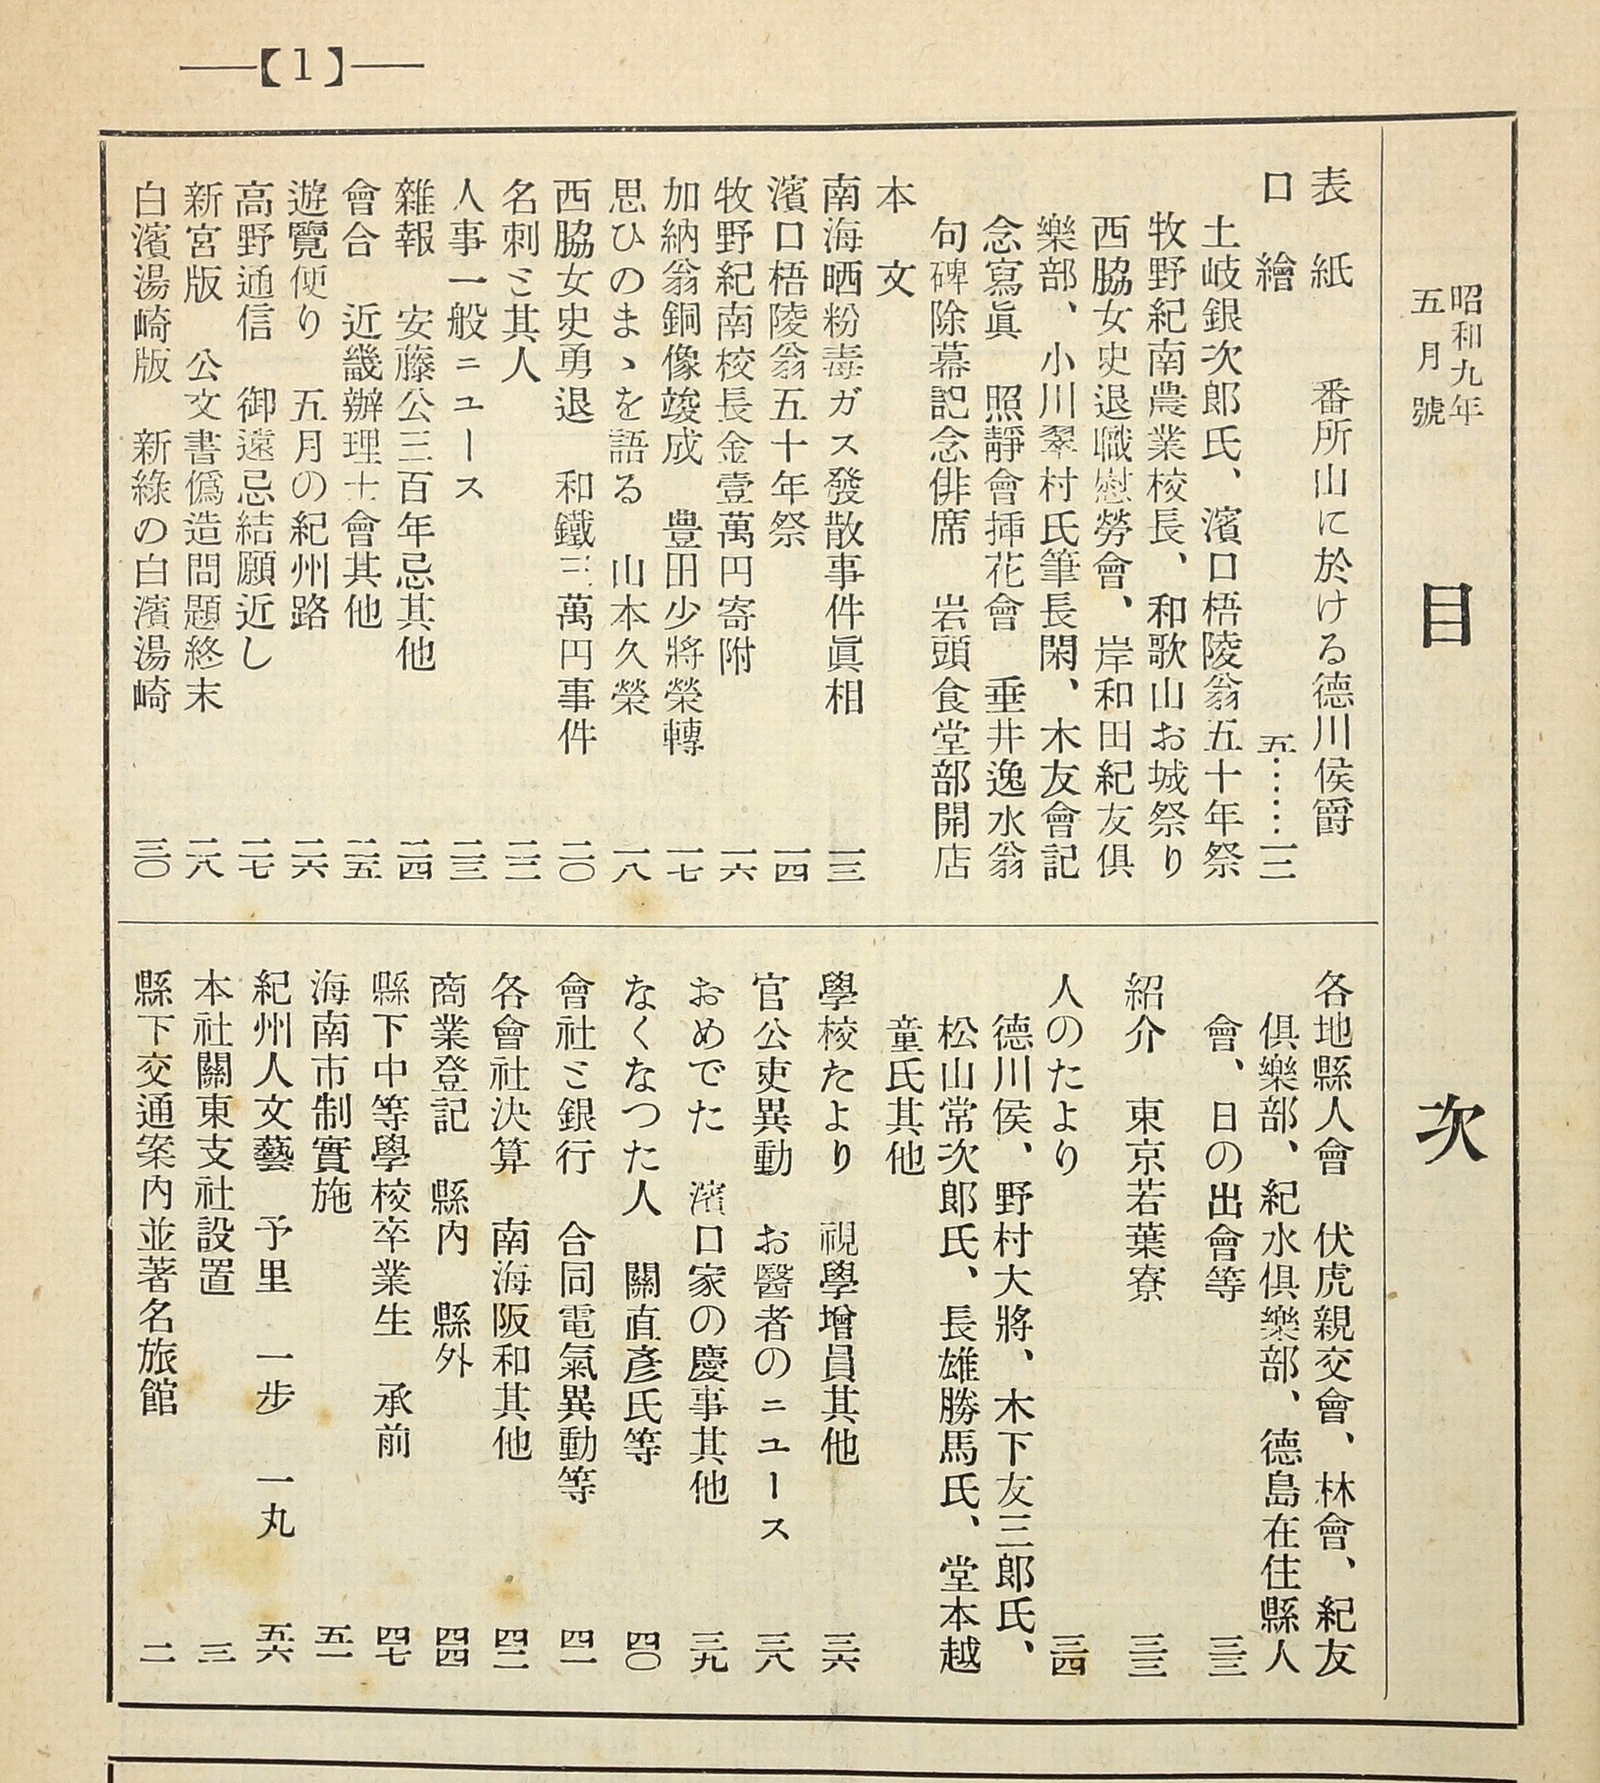 【1】
昭和九年
五月號
目次
表紙 番所山に於ける德川侯爵
口繪 五……一二
土岐銀次郎氏、濱口梧陵翁五十年祭
牧野紀南農業校長、和歌山お城祭り
西脇女史退職慰勞會、岸和田紀友俱
樂部、小川翠村氏筆長閑、木友會記
念寫眞 照靜會揷花會 垂井逸水翁
句碑除幕記念俳席 岩頭食堂部開店
本文
南海晒粉毒ガス發散事件眞相 一三
濱口梧陵翁五十年祭 一四
牧野紀南校長金壹萬円寄附 一六
加納翁銅像竣成 豊田少將榮轉 一七
思ひのまゝを語る 山本久榮 一八
西脇女史勇退 和鐵三萬円事件 二〇
名刺ミ其人 二二
人事一般ニュース 二三
雜報 安藤公三百年忌其他 二四
會合 近畿辦理士會其他 二五
遊覽便り 五月の紀州路 二六
高野通信 御遠忌結願近し 二七
新宮版 公文書僞造問題終末 二八
白濱湯崎版 新綠の白濱湯崎 三〇
各地縣人會 伏虎親交會、林會、紀友
俱樂部、紀水俱樂部、德島在住縣人
會、日の出會等 三三
紹介 東京若葉寮 三三
人のたより 三四
德川侯、野村大將、木下友三郎氏、
松山常次郎氏、長雄勝馬氏、堂本越
童氏其他
學校たより 視學增員其他 三六
官公吏異動 お醫者のニュース 三八
おめでた 濱口家の慶事其他 三九
なくなつた人 關直彥氏等 四〇
會社ミ銀行 合同電氣異動等 四一
各會社決算 南海阪和其他 四二
商業登記 縣內 縣外 四四
縣下中等學校卒業生 承前 四七
海南市制實施 五一
紀州人文藝 予里 一步 一丸 五六
本社關東支社設置 三
縣下交通案內並著名旅館 二